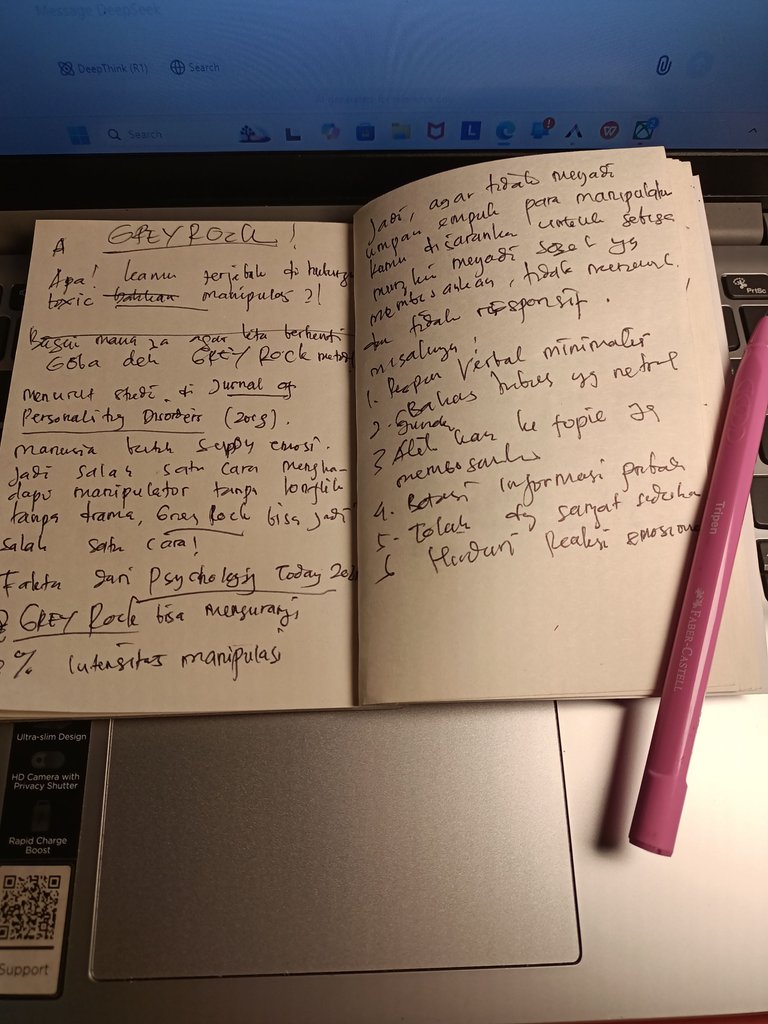 Message DeepSeek
DeepThink (R1)
Search
Search
PrtSc
A GREY ROCK!
Apa! kamu terjebak di
toxic manipulas ?!
agar kita berhenti
Coba deh GREY ROCK
menurut studi di Jurnal of
Personality Disorders
manusia butuh supply emosi.
Jadi salah satu cara mengha-
dapi manipulator tanpa konflik
tanpa drama, Grey Rock bisa jadi
salah satu cara!
Fakta dari Psychology Today
GREY Rock bisa mengurangi
% Intensitas manipulasi
Jadi, agar tidak menjadi
umpan empuk para manipulator
kamu disarankan untuk sebisa
mungkin menjadi sosok yg
membosankan, tidak
dan tidak responsif.
misalnya!
1. Respon Verbal minimalis
2. Bahasa tubuh yg netral
3 Alih kan ke topic yg
membosankan
4. Batasi informasi pribadi
5. Tolak dg sangat sederhana
6 Hindari Reaksi emosional
Tripen
FABER-CASTELL
Ultra-slim Design
HD Camera with
Privacy Shutter
Rapid Charge
Boost
Support